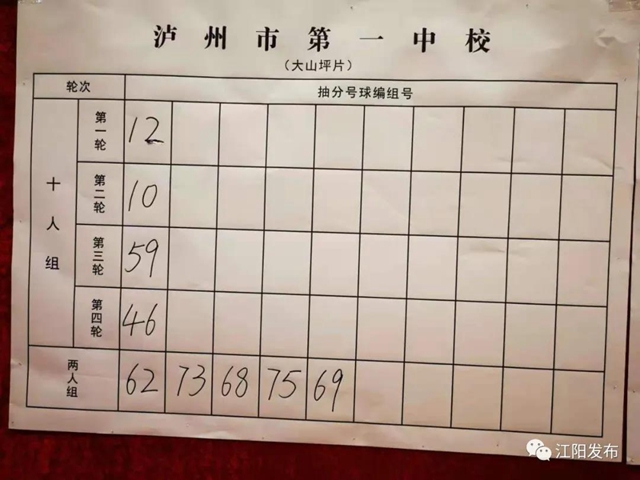 泸州市第一中校
（大山坪片）
轮次 抽分号球编组号
十人组 第一轮 12
第二轮 10
第三轮 59
第四轮 46
两人组 62 73 68 75 69
江阳发布